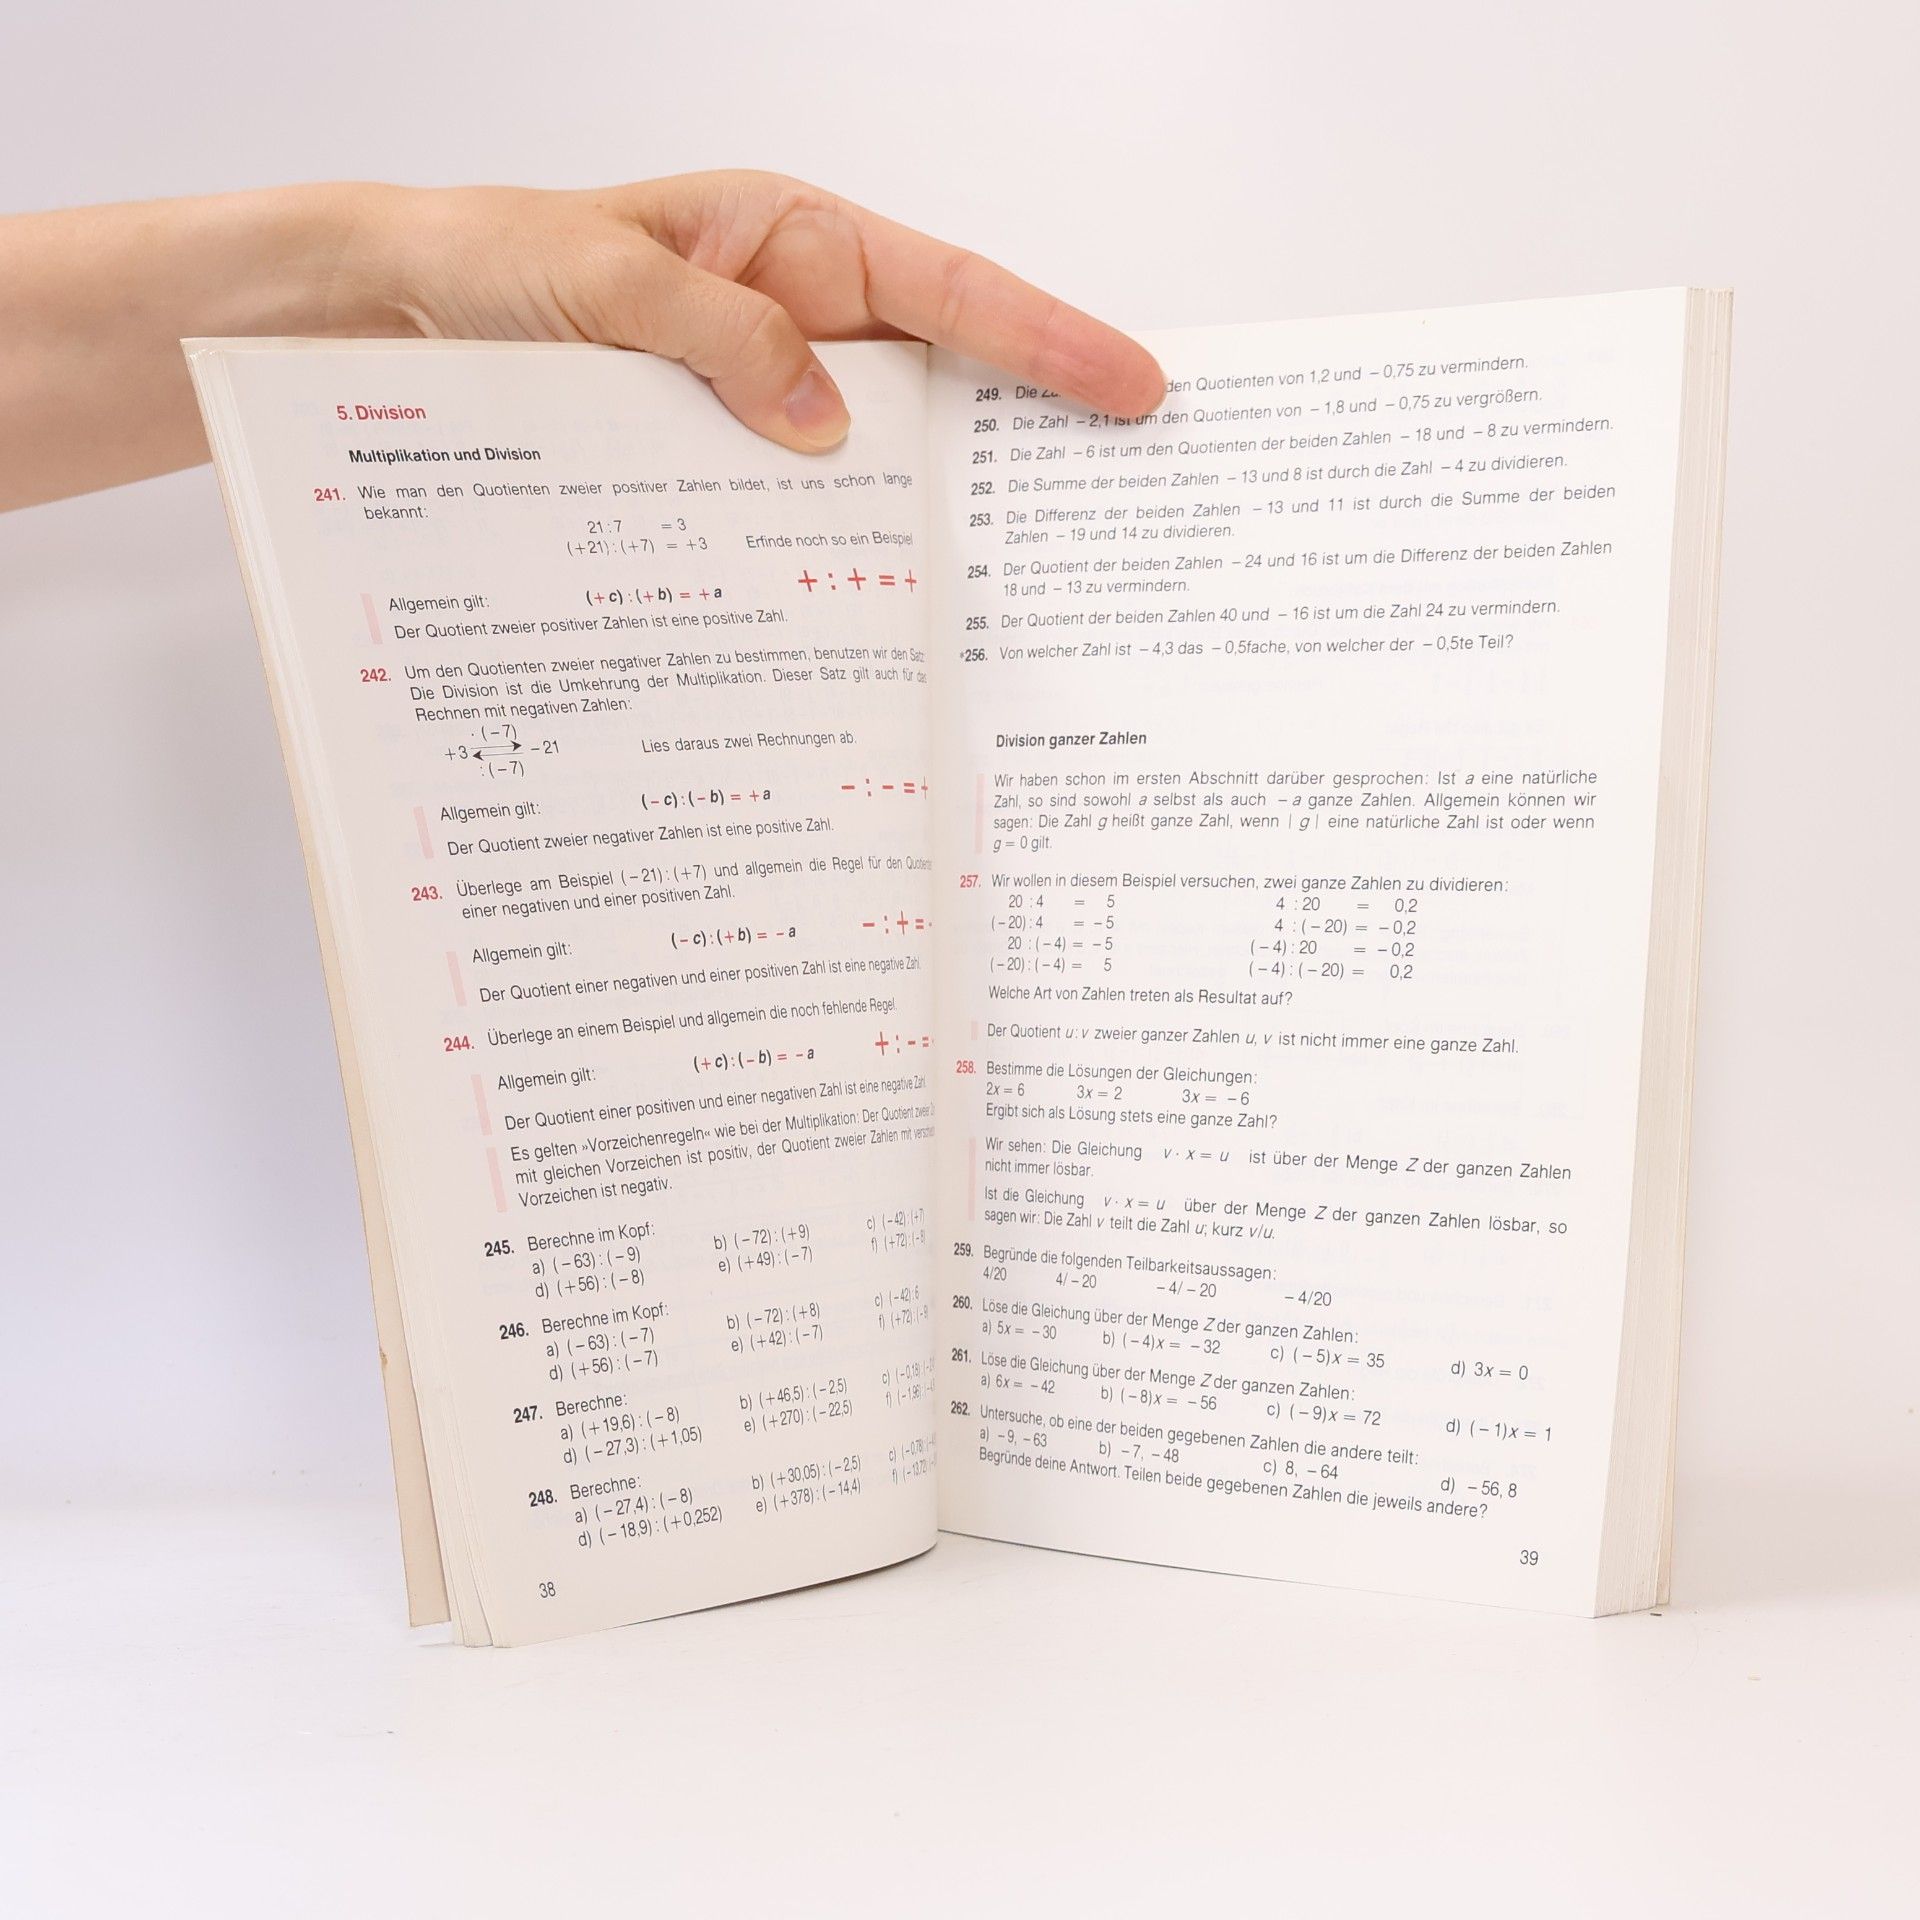 5. Division
Multiplikation und Division
241. Wie man den Quotienten zweier positiver Zahlen bildet, ist uns schon lange
bekannt:
21 : 7 = 3
(+21) : (+7) = +3 Erfinde noch so ein Beispiel
Allgemein gilt: (+c) : (+b) = +a + : + = +
Der Quotient zweier positiver Zahlen ist eine positive Zahl.
242. Um den Quotienten zweier negativer Zahlen zu bestimmen, benutzen wir den Satz:
Die Division ist die Umkehrung der Multiplikation. Dieser Satz gilt auch für das
Rechnen mit negativen Zahlen:
· (−7)
+3 −21 Lies daraus zwei Rechnungen ab.
: (−7)
Allgemein gilt: (−c) : (−b) = +a − : − = +
Der Quotient zweier negativer Zahlen ist eine positive Zahl.
243. Überlege am Beispiel (−21) : (+7) und allgemein die Regel für den
einer negativen und einer positiven Zahl.
Allgemein gilt: (−c) : (+b) = −a − : + = -
Der Quotient einer negativen und einer positiven Zahl ist eine negative Zahl.
244. Überlege an einem Beispiel und allgemein die noch fehlende Regel.
Allgemein gilt: (+c) : (−b) = −a + : − = -
Der Quotient einer positiven und einer negativen Zahl ist eine negative Zahl.
Es gelten »Vorzeichenregeln« wie bei der Multiplikation: Der Quotient zweier
mit gleichen Vorzeichen ist positiv, der Quotient zweier Zahlen mit
Vorzeichen ist negativ.
245. Berechne im Kopf:
a) (−63) : (−9) b) (−72) : (+9) c) (−42) : (+7)
d) (+56) : (−8) e) (+49) : (−7) f) (+72) : (−8
246. Berechne im Kopf:
a) (−63) : (−7) b) (−72) : (+8) c) (−42) : 6
d) (+56) : (−7) e) (+42) : (−7) f) (+72) : (−9
247. Berechne:
a) (+19,6) : (−8) b) (+46,5) : (−2,5) c) (−0,18) :
d) (−27,3) : (+1,05) e) (+270) : (−22,5) f) (−1,96) :
248. Berechne:
a) (−27,4) : (−8) b) (+30,05) : (−2,5) c) (−0,78) :
d) (−18,9) : (+0,252) e) (+378) : (−14,4) f) (−13,72) :
38
249. Die den Quotienten von 1,2 und −0,75 zu vermindern.
250. Die Zahl −2,1 ist um den Quotienten von −1,8 und −0,75 zu vergrößern.
251. Die Zahl −6 ist um den Quotienten der beiden Zahlen −18 und −8 zu vermindern.
252. Die Summe der beiden Zahlen −13 und 8 ist durch die Zahl −4 zu dividieren.
253. Die Differenz der beiden Zahlen −13 und 11 ist durch die Summe der beiden
Zahlen −19 und 14 zu dividieren.
254. Der Quotient der beiden Zahlen −24 und 16 ist um die Differenz der beiden Zahlen
18 und −13 zu vermindern.
255. Der Quotient der beiden Zahlen 40 und −16 ist um die Zahl 24 zu vermindern.
*256. Von welcher Zahl ist −4,3 das −0,5fache, von welcher der −0,5te Teil?
Division ganzer Zahlen
Wir haben schon im ersten Abschnitt darüber gesprochen: Ist a eine natürliche
Zahl, so sind sowohl a selbst als auch −a ganze Zahlen. Allgemein können wir
sagen: Die Zahl g heißt ganze Zahl, wenn | g | eine natürliche Zahl ist oder wenn
g = 0 gilt.
257. Wir wollen in diesem Beispiel versuchen, zwei ganze Zahlen zu dividieren:
20 : 4 = 5 4 : 20 = 0,2
(−20) : 4 = −5 4 : (−20) = −0,2
20 : (−4) = −5 (−4) : 20 = −0,2
(−20) : (−4) = 5 (−4) : (−20) = 0,2
Welche Art von Zahlen treten als Resultat auf?
Der Quotient u : v zweier ganzer Zahlen u, v ist nicht immer eine ganze Zahl.
258. Bestimme die Lösungen der Gleichungen:
2x = 6 3x = 2 3x = −6
Ergibt sich als Lösung stets eine ganze Zahl?
Wir sehen: Die Gleichung v · x = u ist über der Menge Z der ganzen Zahlen
nicht immer lösbar.
Ist die Gleichung v · x = u über der Menge Z der ganzen Zahlen lösbar, so
sagen wir: Die Zahl v teilt die Zahl u; kurz v/u.
259. Begründe die folgenden Teilbarkeitsaussagen:
4/20 4/−20 −4/−20 −4/20
260. Löse die Gleichung über der Menge Z der ganzen Zahlen:
a) 5x = −30 b) (−4)x = −32 c) (−5)x = 35 d) 3x = 0
261. Löse die Gleichung über der Menge Z der ganzen Zahlen:
a) 6x = −42 b) (−8)x = −56 c) (−9)x = 72 d) (−1)x = 1
262. Untersuche, ob eine der beiden gegebenen Zahlen die andere teilt:
a) −9, −63 b) −7, −48 c) 8, −64 d) −56, 8
Begründe deine Antwort. Teilen beide gegebenen Zahlen die jeweils andere?
39